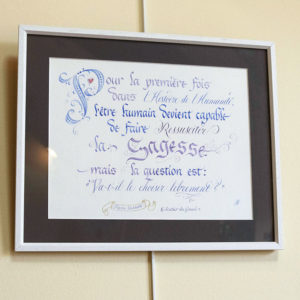 Pour la première fois
dans l'Histoire de l'Humanité,
l'être humain devient capable
de faire Ressusciter
la Sagesse
mais la question est:
"Va-t-il le choisir librement ?"